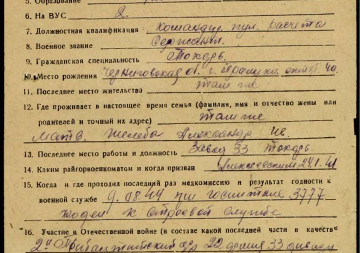 5. Образование
6. На ВУС 2.
7. Должностная квалификация: командир пул. расчета
8. Военное звание Сержант.
9. Гражданская специальность Токарь
10. Место рождения Черниговская о. г.
11. Последнее место жительства там же
12. Где проживает в настоящее время семья (фамилия, имя и отчество жены или
родителей и точный их адрес) там же
мать Александр Ив.
13. Последнее место работы и должность Завод 33 Токарь.
14. Каким райгорвоенкоматом и когда призван 241.41
15. Когда и где проходил последний раз медкомиссию и результат годности к
военной службе 9.08.44 при госпитале 3777
годен к строевой службе
16. Участие в Отечественной войне (в составе какой последней части и в качестве
22 армия 33 дивизии